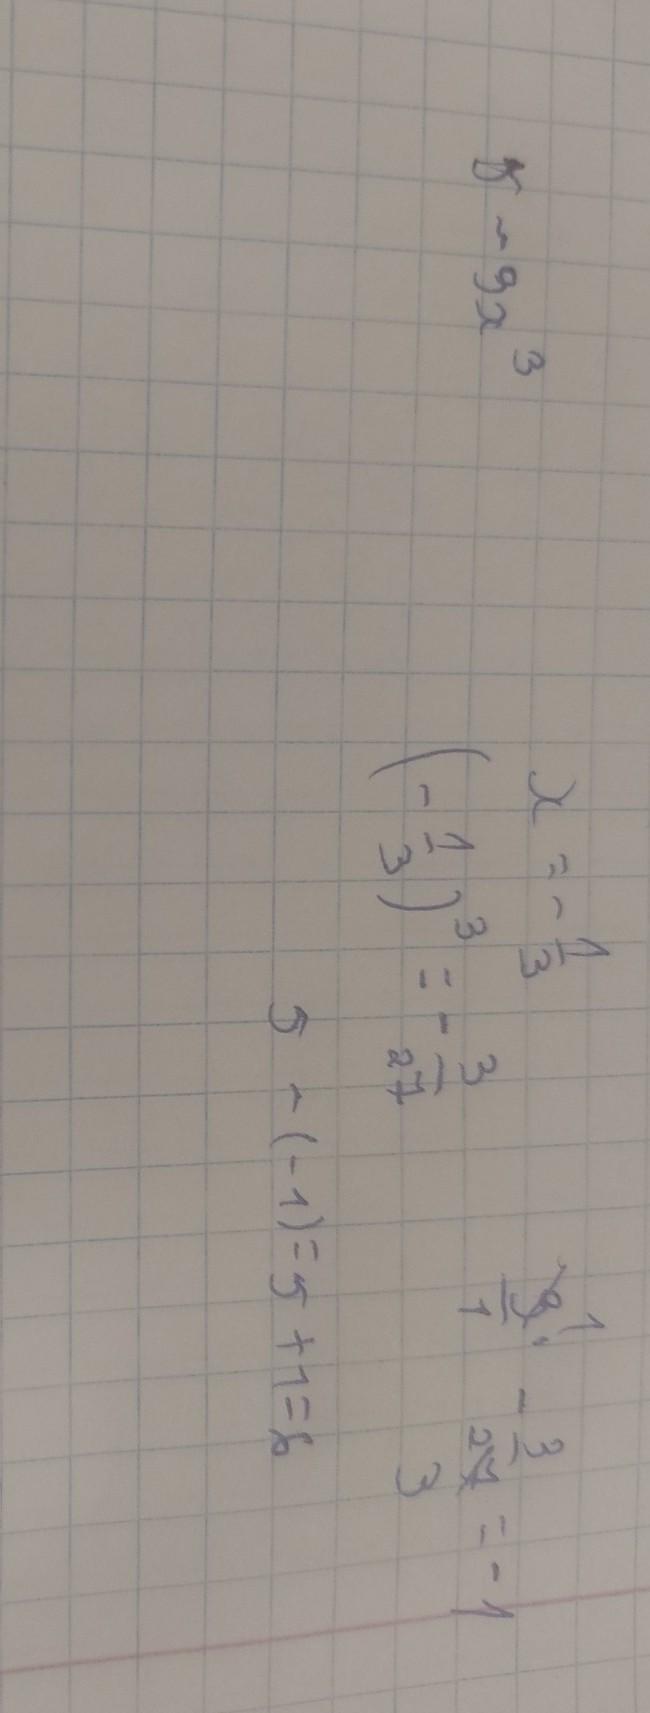 5 - 9x³
x = - 1/3
(- 1/3)³ = - 3/27
9/1 · - 3/27 = -1
1
3
5 - (-1) = 5 + 1 = 6